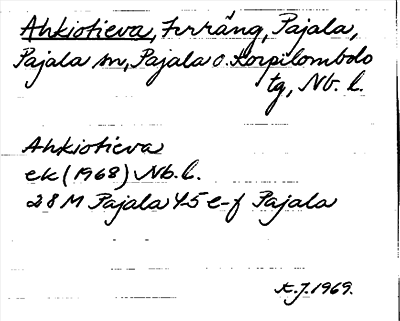 Ahkiotieva, Terräng, Pajala,
Pajala sn, Pajala o. Korpilombolo
tg, Nb. l.
Ahkiotieva
ek (1968) Nb. l.
28 M Pajala 4-5 e-f Pajala
1969.